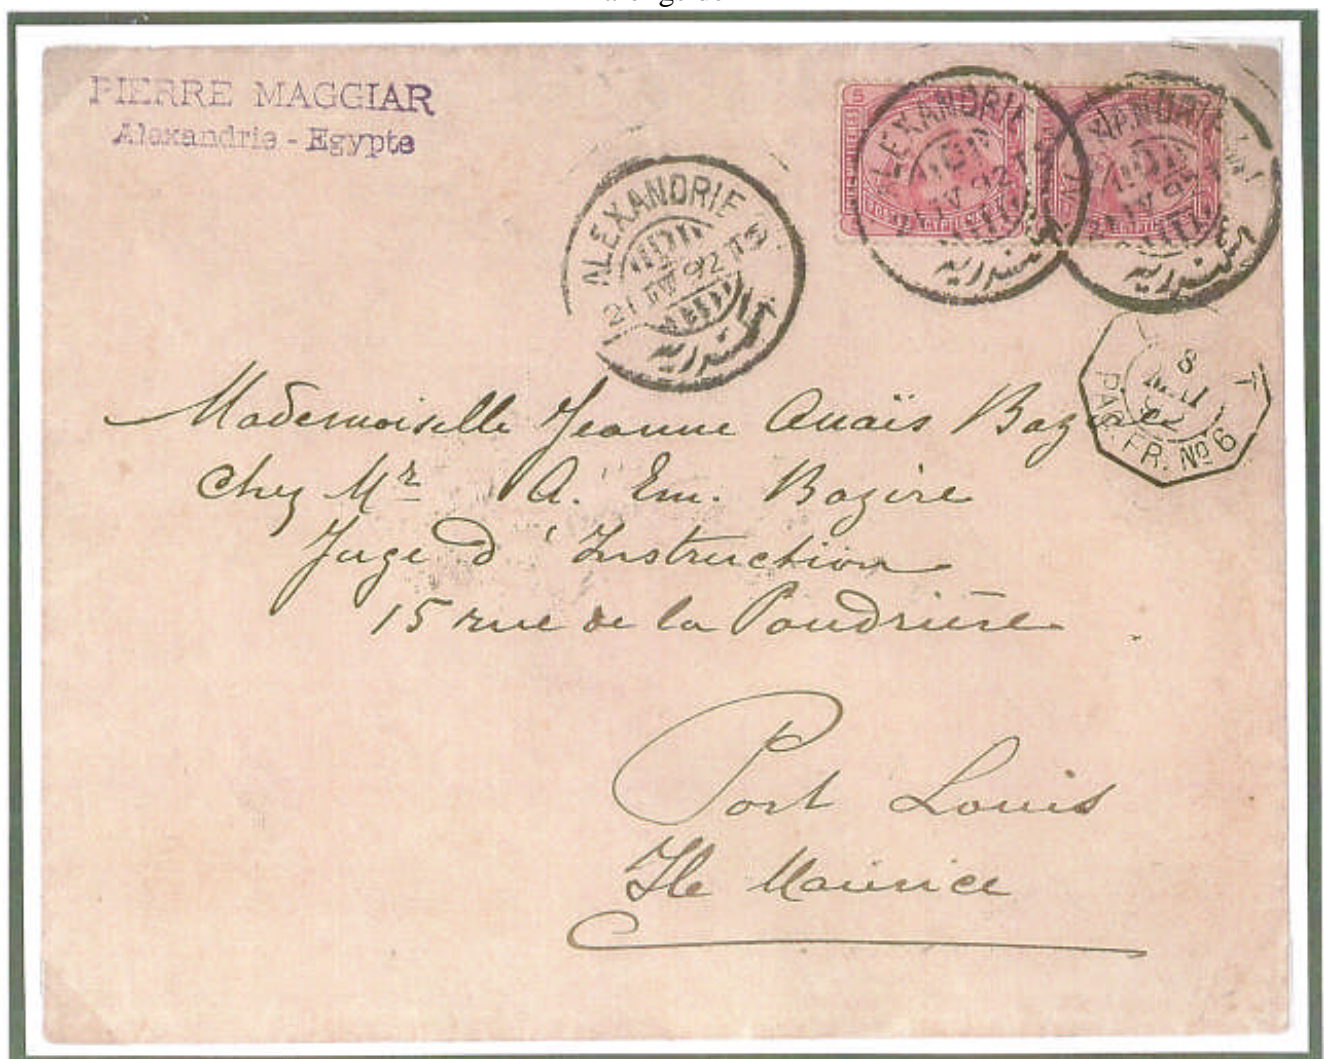 PIERRE MAGGIAR
Alexandrie - Egypte
ALEXANDRIE
21 IV 92 T5
اسكندرية
5
ALEXANDRIE
IV 92 T
اسكندرية
ALEXANDRIE
اسكندرية
8 MAI
PAQ. FR. No 6
Mademoiselle Jeanne Anaïs Bazire
Chez Mr A. Em. Bazire
Juge d'Instruction
15 rue de la Poudrière
Port Louis
Ile Maurice